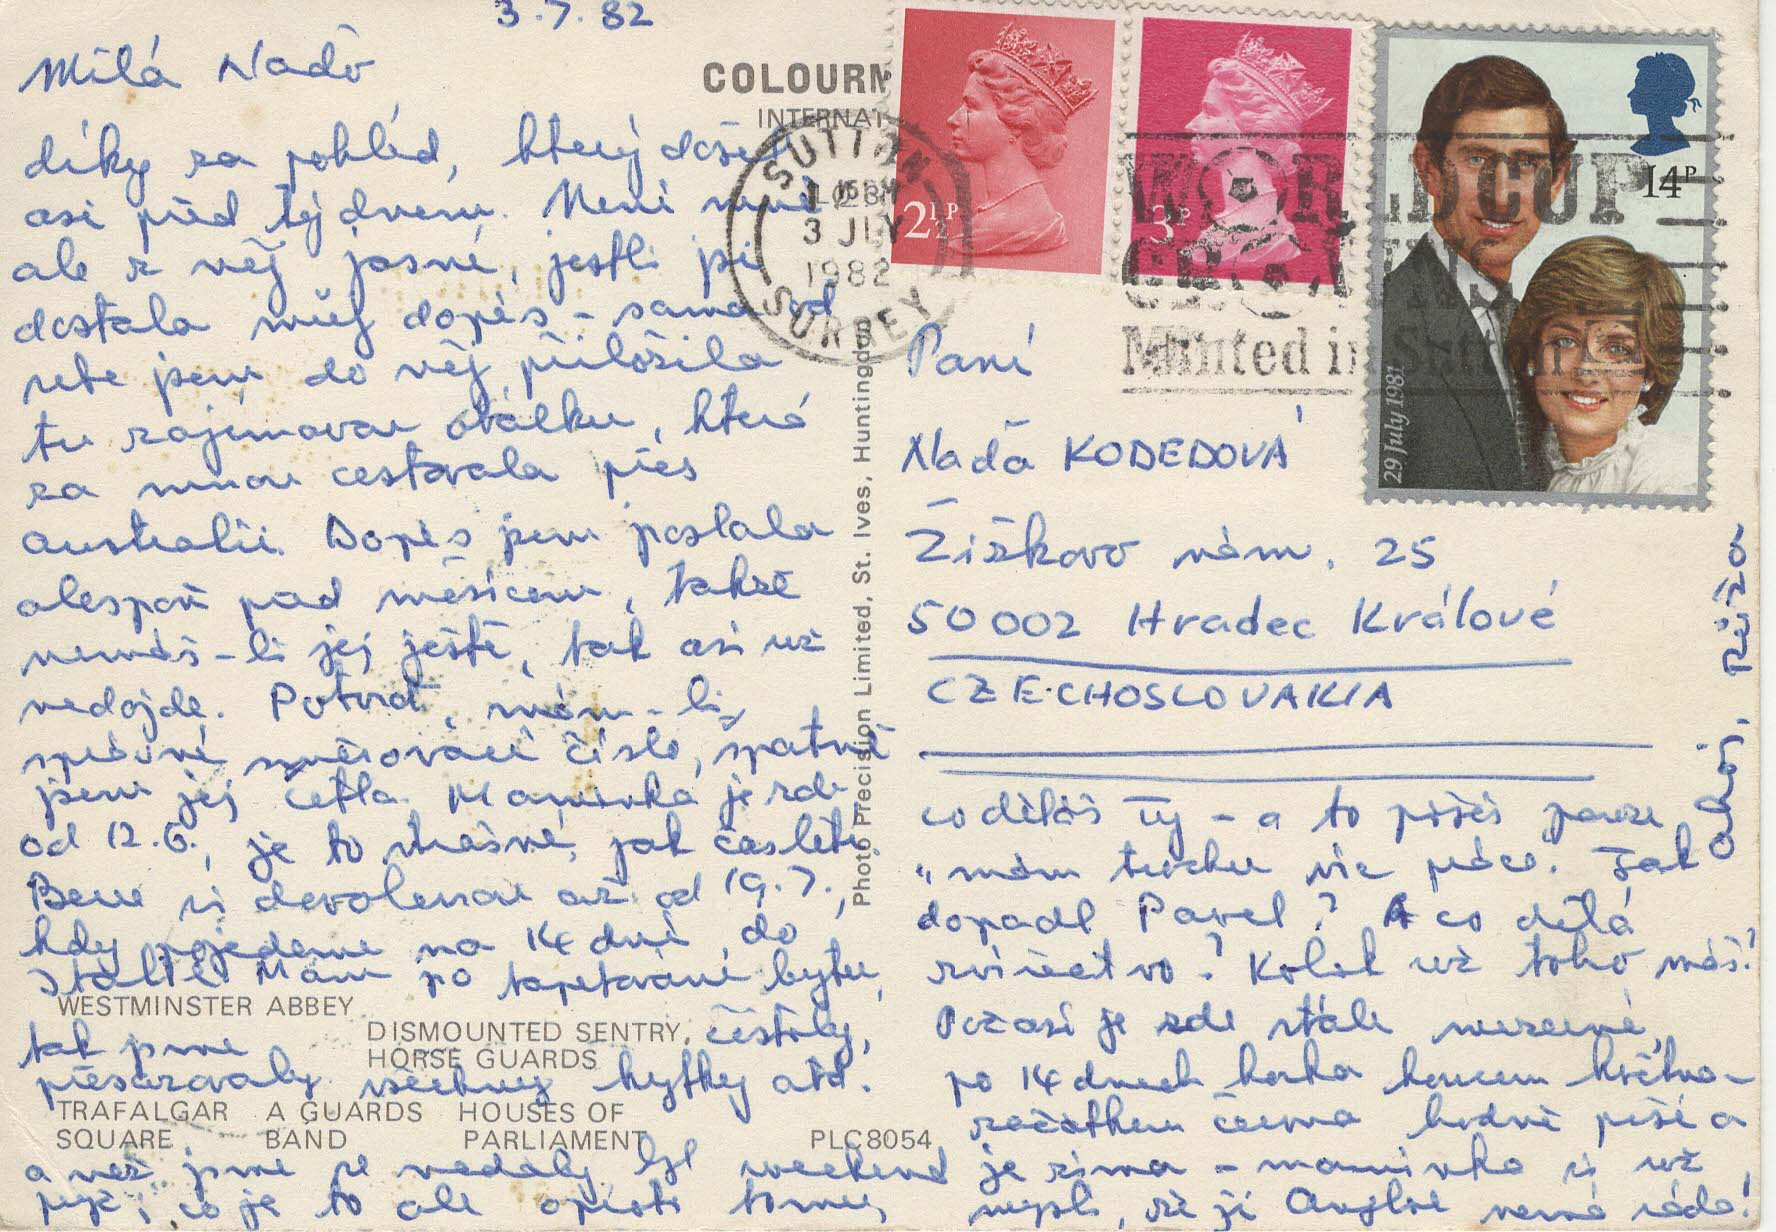 3.7.82
Milá Naďo
díky za pohled, který došel
asi před týdnem. Není mně
ale z něj jasné, jestli jsi
dostala můj dopis - sama od
sebe jsem do něj přiložila
tu zajímavou obálku, která
za mnou cestovala přes
australii. Dopis jsem poslala
alespoň před měsícem, takže
nemáš-li jej ještě, tak asi už
nedojde. Potvrď, mám-li
správné směrovací číslo, špatně
jsem jej četla. Maminka je zde
od 12.6., je to strašné, jak čas letí.
Beru si dovolenou až od 19.7.,
kdy pojedeme na 14 dní do
Itálie. Mám po tapetování bytu,
tak jsme čistily,
přesazovaly všechny kytky atd.
a než jsme se nadály byl weekend
pryč; co je to ale oproti tomu,
co děláš Ty - a to píšeš pouze
"mám trochu víc práce. Jak
dopadl Pavel? A co dělá
zvířectvo? Kolik už toho máš?
Počasí je zde stále mizerné,
po 14 dnech horka koncem května-
začátkem června hodně prší a
je zima - maminka si už
myslí, že ji Anglie nemá ráda!
Ahoj, Růža
COLOURM
INTERNAT
Photo Precision Limited, St. Ives, Huntingdon
SUTTON
3 JLY
1982
SURREY
2½P
3P
14P
29 July 1981
WORLD CUP
CROWNS
Minted in Sutton
Paní
Naďa KODEDOVÁ
Žižkovo nám. 25
50002 Hradec Králové
CZECHOSLOVAKIA
WESTMINSTER ABBEY
DISMOUNTED SENTRY,
HORSE GUARDS
TRAFALGAR SQUARE
A GUARDS BAND
HOUSES OF PARLIAMENT
PLC8054